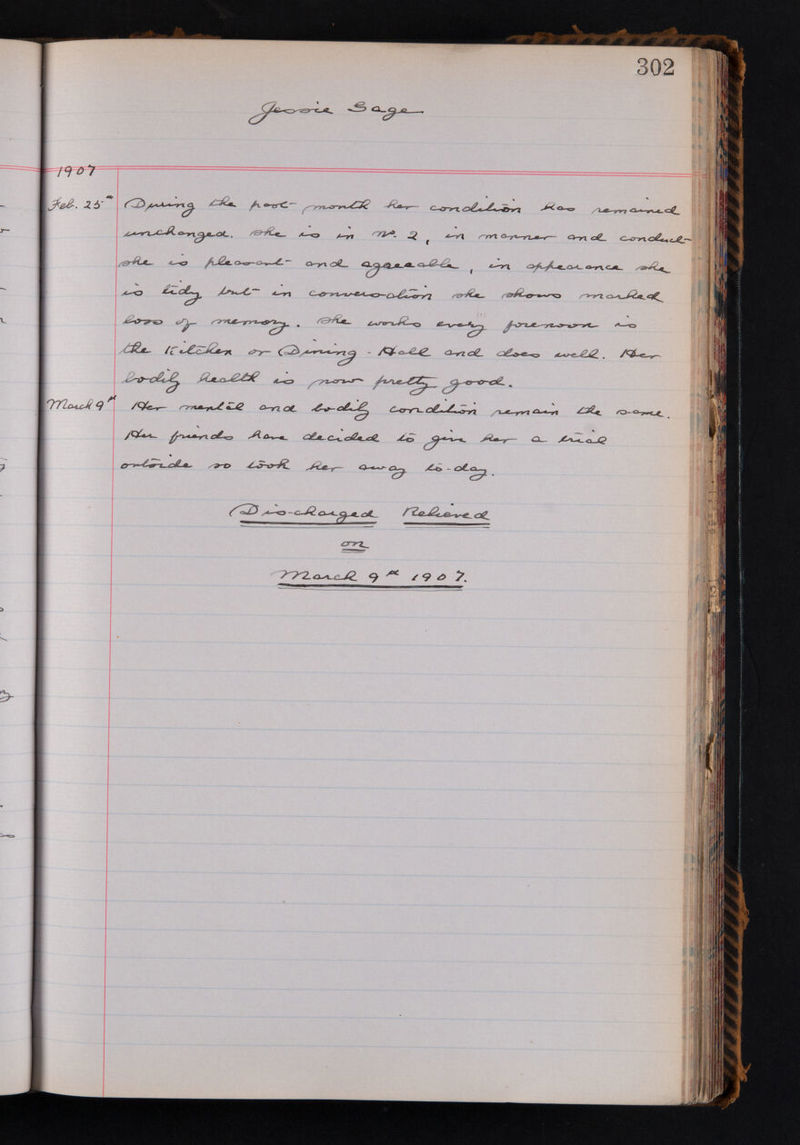 302
Jessie Sage
1907
Feb. 25th During the past month her condition has remained
unchanged. She is in No. 2, in manner and conduct
she is pleasant and agreeable, in appearance she
is tidy but in conversation she shows marked
loss of memory. She works every forenoon in
the Kitchen or Dining-Hall and does well. Her
bodily health is now pretty good.
March 9th Her mental and bodily condition remain the same.
Her friends have decided to give her a trial
outside so took her away to-day.
Discharged Relieved
on
March 9th 1907.